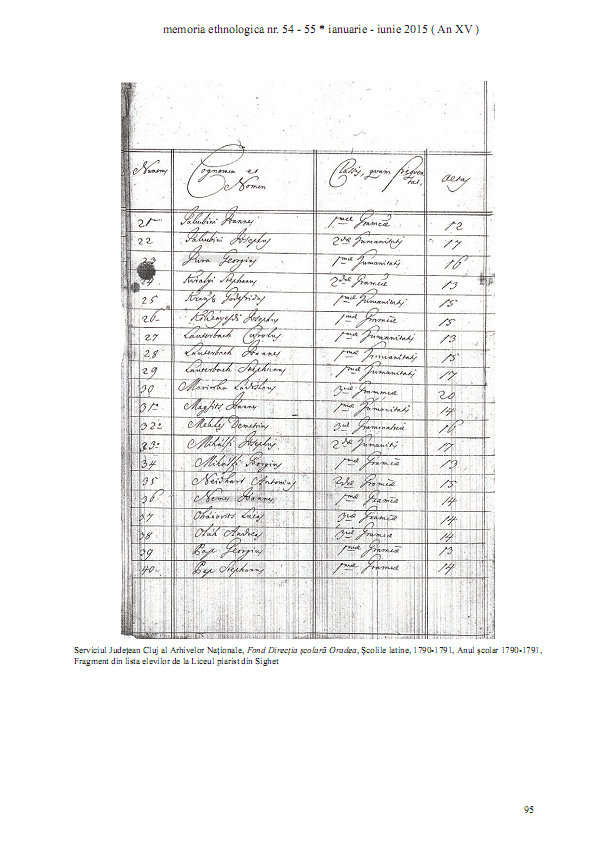 memoria ethnologica nr. 54 - 55 * ianuarie - iunie 2015 ( An XV )
Numerus Cognomen et Nomen Classis, quam frequentat, aetas
21 Joannes 1mae Gramcae 12
22 Josephus 2dae Humanitatis 17
23 Georgius 1mae Humanitatis 16
24 Királyi Stephanus 2dae Gramcae 13
25 1mae Humanitatis 15
26 Josephus 1mae Gramcae 15
27 Lauterbach Carolus 1mae Humanitatis 13
28 Lauterbach Joannes 1mae Humanitatis 15
29 Lauterbach Stephanus 1mae Humanitatis 17
30 Ladislaus 3tiae 20
31 Joannes 1mae Humanitatis 14
32 Demetrius 3tiae Grammaticae 16
33 Mihályi Josephus 2dae 17
34 Mihályi Georgius 1mae Gramcae 13
35 Neidhart Antonius 2dae Gramcae 15
36 Nemes Joannes 1mae Gramcae 14
37 Lucas 3tiae Gramcae 14
38 Oláh Andreas 3tiae Gramcae 14
39 Pap Georgius 1mae Gramcae 13
40 Pap Stephanus 1mae Gramcae 14
Serviciul Județean Cluj al Arhivelor Naționale, Fond Direcția școlară Oradea, Școlile latine, 1790-1791, Anul școlar 1790-1791,
Fragment din lista elevilor de la Liceul piarist din Sighet
95